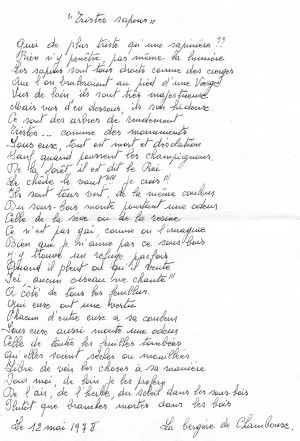 "Tristes sapins"
Quoi de plus triste qu'une sapinière ??
Rien n'y pénètre, pas même la lumière
Les sapins sont tous droits comme des cierges
Que l'on brûleraient au pied d'une Vierge
Vus de loin ils sont très majestueux
Mais vus d'en dessous, ils son hideux
Ce sont des arbres de rendement
Tristes... comme des monuments
Sous eux, tout est mort et désolation
Sauf, quand poussent les champignons
De la forêt il est dit le Roi
Le chêne le vaut !!! je crois !!!
Ils sont tous verts, de la même couleur
Du sous-bois monte pourtant une odeur
Celle de la sève ou de la résine
Ce n'est pas gai, comme on l'imagine
Bien que je n'aime pas ce sous bois
J'y trouve un refuge parfois
Quand il pleut ou qu'il vente
Ici, aucun oiseau ne chante !!!
A côté de tous les feuillus
Qui eux ont une vertu
Chacun d'entre eux a sa couleur
Sous eux aussi monte une odeur
Celle de toutes les feuilles tombées
Qu'elles soient sèches ou mouillées
Libre de voir les choses à sa manière
Sous moi, de loin je les préfère
De l'air, de l'herbe, du soleil dans les sous-bois
Plutôt que branches mortes dans les bois
Le 12 mai 1978 La bergère de Chambousc.